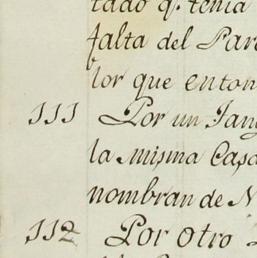 tado q.e tenia
falta del Par
lor que enton
111 Por un Tanq
la misma Casa
nombran de N
112 Por otro